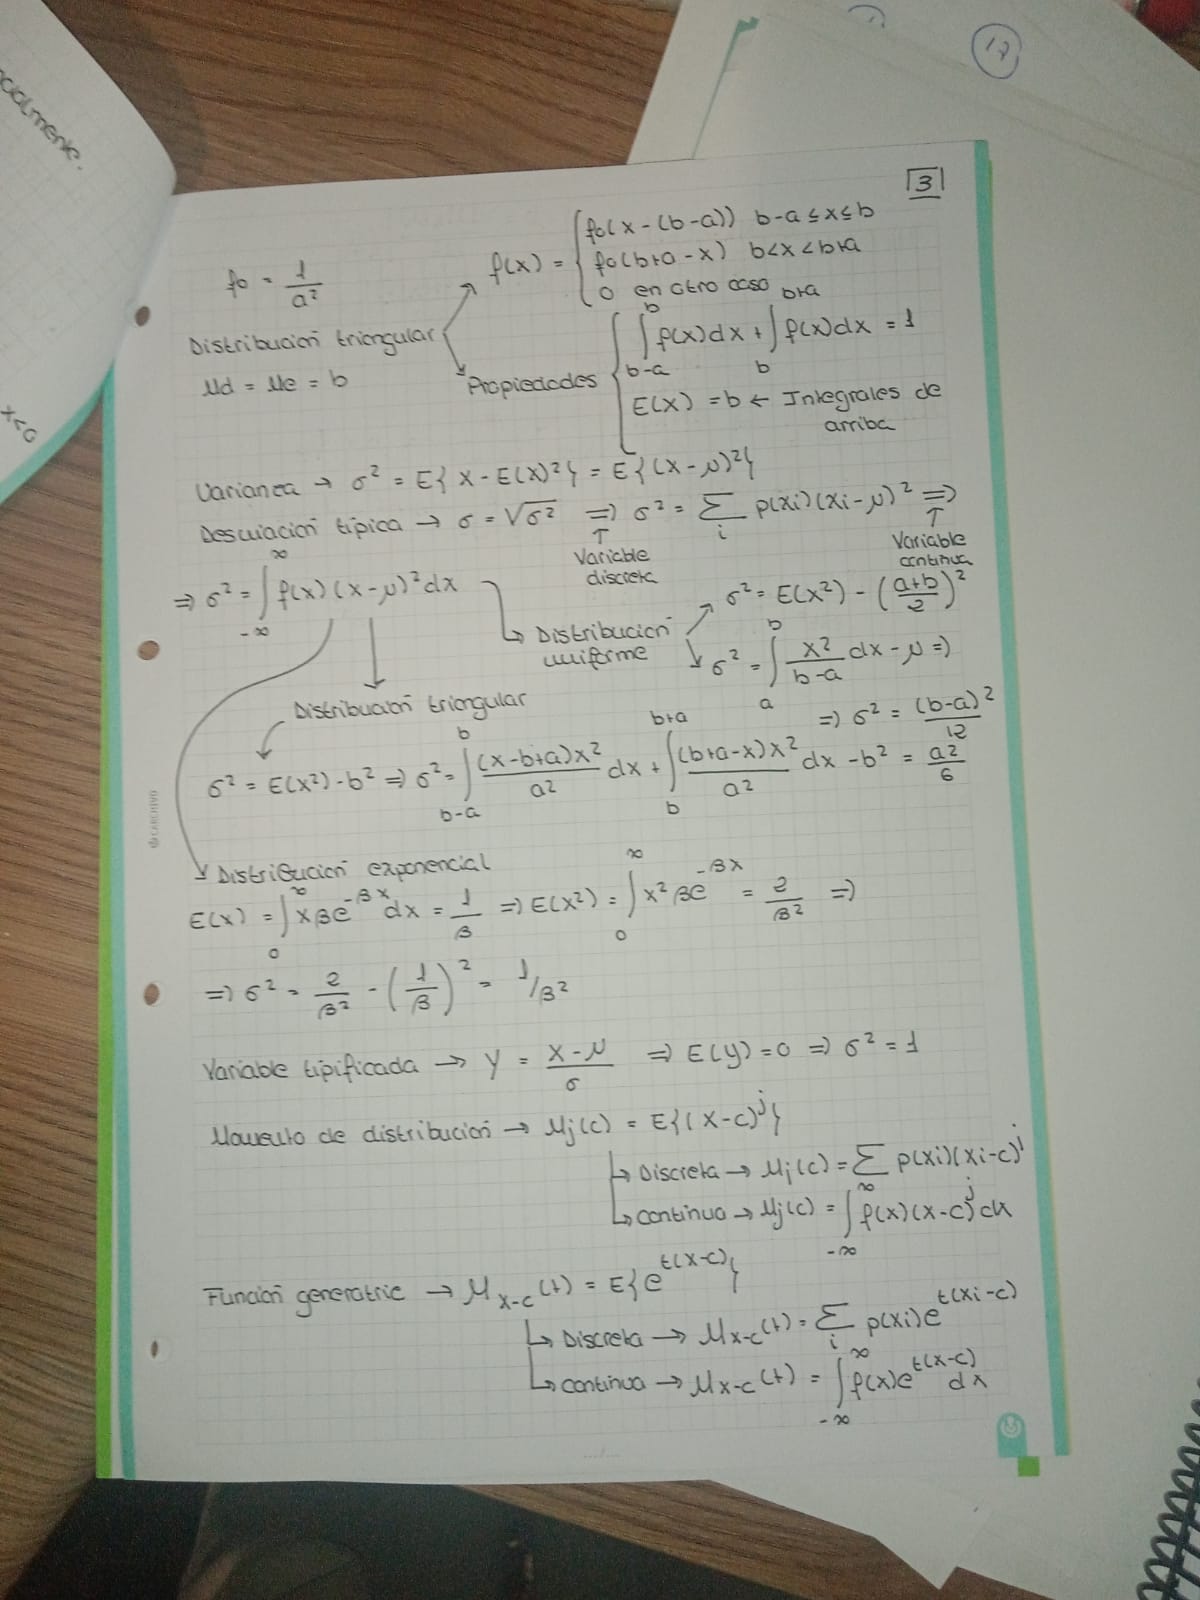 17
ncialmente.
x<0
3
f0 = 1/a²
f(x) = { f0(x-(b-a)) b-a ≤ x ≤ b
f0(b+a-x) b<x<b+a
0 en otro caso
Distribución triangular
Md = Me = b
Propiedades { ∫_{b-a}^{b} f(x)dx + ∫_{b}^{b+a} f(x)dx = 1
E(x) = b ← Integrales de
arriba
Varianza → σ² = E{x-E(x)²} = E{(x-μ)²}
Desviación típica → σ = √σ² ⇒ σ² = Σ_i p(xi)(xi-μ)² ⇒
↑ Variable discreta
↑ Variable continua
⇒ σ² = ∫_{-∞}^{∞} f(x)(x-μ)²dx
↳ Distribución uniforme
↗ σ² = E(x²) - ((a+b)/2)²
↘ σ² = ∫_{a}^{b} x²/(b-a) dx - μ ⇒
⇒ σ² = (b-a)²/12
Distribución triangular
σ² = E(x²) - b² ⇒ σ² = ∫_{b-a}^{b} (x-b+a)x²/a² dx + ∫_{b}^{b+a} (b+a-x)x²/a² dx - b² = a²/6
CARCHIVO
Distribución exponencial
E(x) = ∫_{0}^{∞} xβe^{-βx} dx = 1/β ⇒ E(x²) = ∫_{0}^{∞} x² βe^{-βx} = 2/β² ⇒
⇒ σ² = 2/β² - (1/β)² = 1/β²
Variable tipificada → Y = (x-μ)/σ ⇒ E(y)=0 ⇒ σ² = 1
Momento de distribución → Mj(c) = E{(x-c)^j}
↳ Discreta → Mj(c) = Σ p(xi)(xi-c)^j
↳ continua → Mj(c) = ∫_{-∞}^{∞} f(x)(x-c)^j dx
Función generatriz → M_{x-c}(t) = E{e^{t(x-c)}}
↳ Discreta → M_{x-c}(t) = Σ_i p(xi)e^{t(xi-c)}
↳ continua → M_{x-c}(t) = ∫_{-∞}^{∞} f(x)e^{t(x-c)} dx